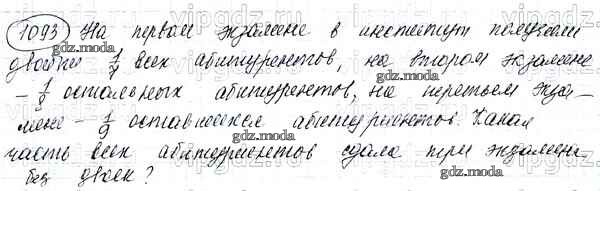 1093 На первом экзамене в институт получили
двойки 1/7 всех абитуриентов, на втором экзамене
- 1/8 остальных абитуриентов, на третьем экза-
мене - 1/9 оставшихся абитуриентов. Какая
часть всех абитуриентов сдала три экзамена
без двоек?
gdz.moda
gdz.moda
gdz.moda
gdz.moda
gdz.moda
gdz.moda